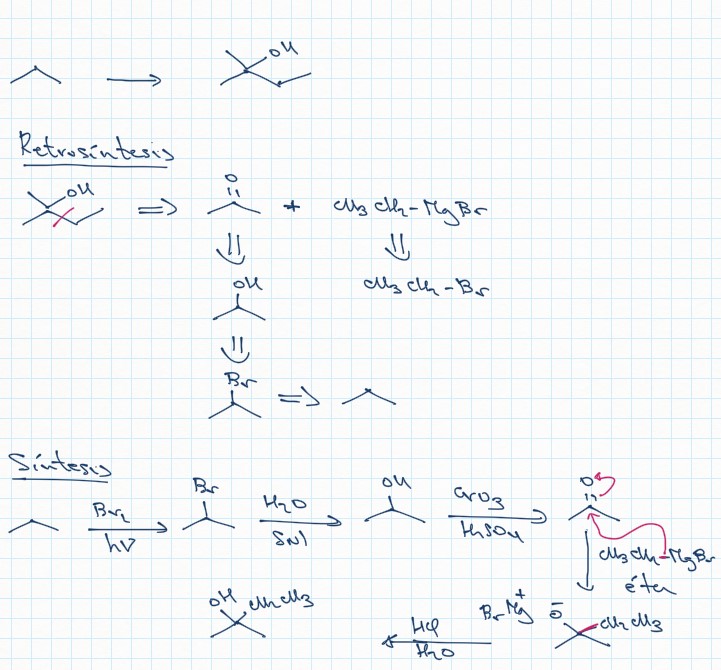 OH
Retrosíntesis
OH ⇒ O + CH3CH2-MgBr
⇓ ⇓
OH CH3CH2-Br
⇓
Br ⇒
Síntesis
Br2 hν Br H2O SN1 OH CrO3 H2SO4 O
CH3CH2-MgBr
éter
OH CH2CH3 HCl H2O BrMg+ O- CH2CH3